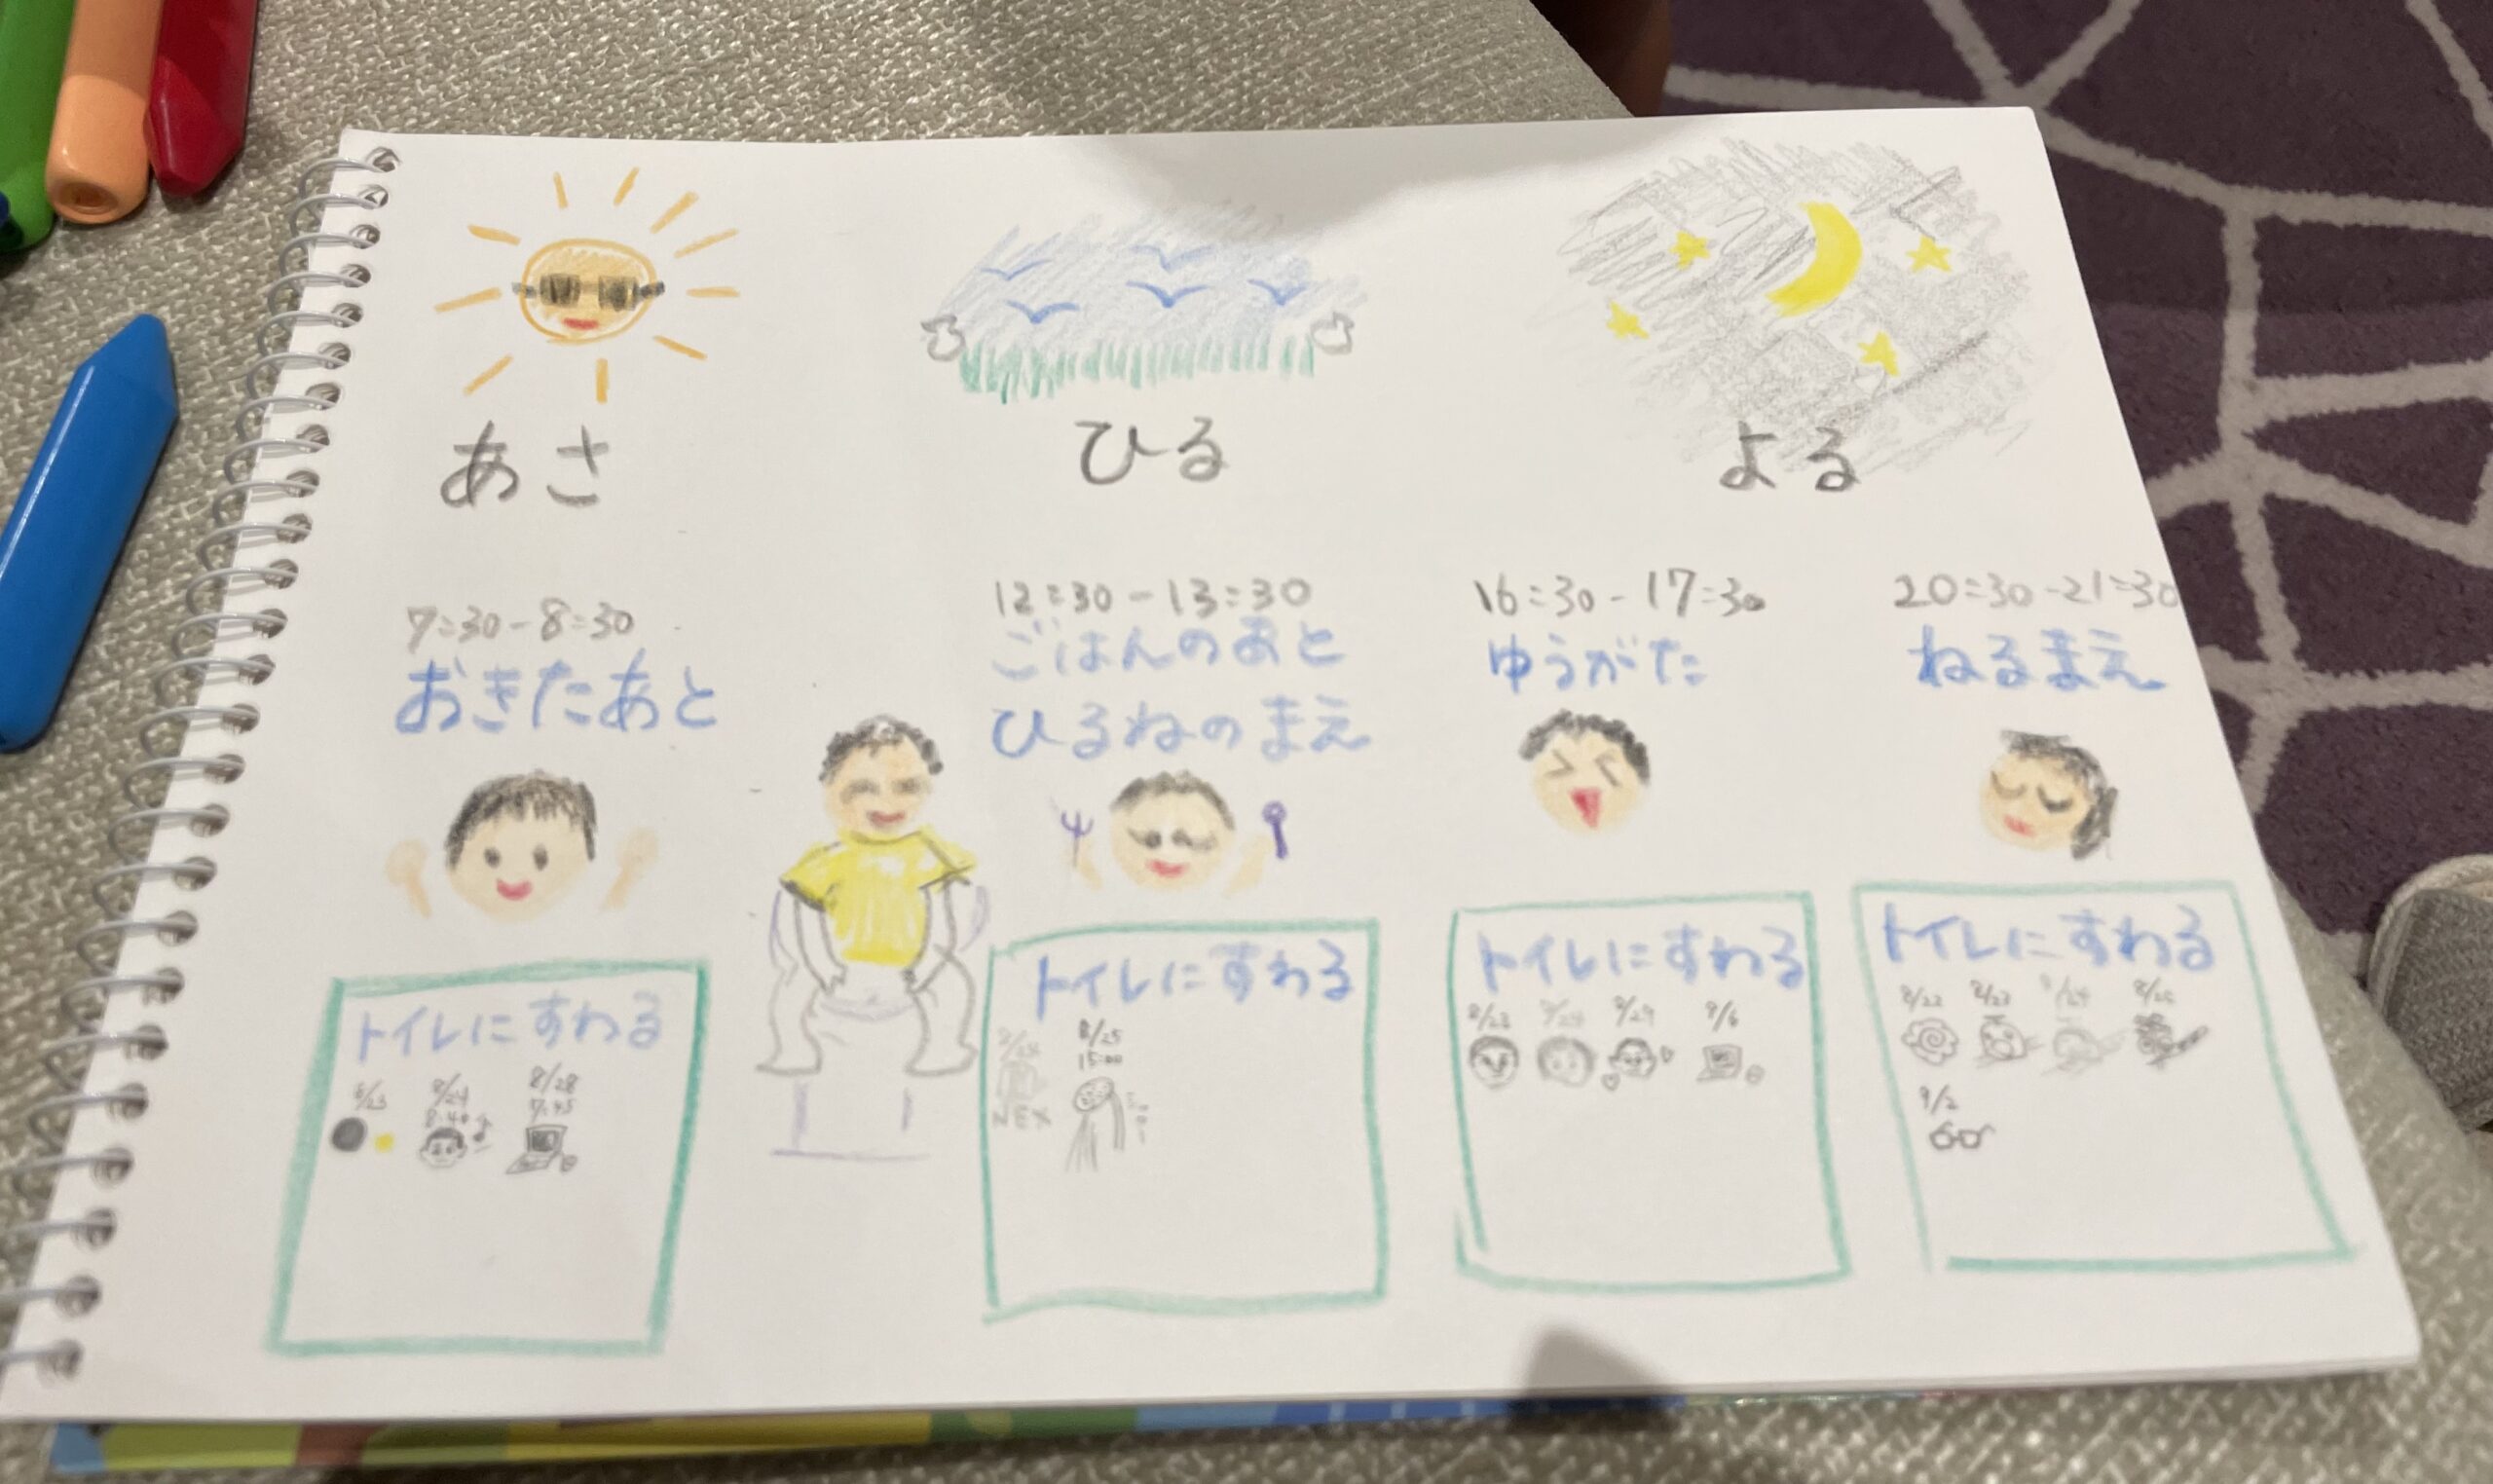 あさ
ひる
よる
7:30-8:30
おきたあと
12:30-13:30
ごはんのあと
ひるねのまえ
16:30-17:30
ゆうがた
20:30-21:30
ねるまえ
トイレにすわる
8/23
8/24
8:40
8/28
7:45
トイレにすわる
NEX
8/25
15:00
トイレにすわる
8/23
8/24
8/29
9/6
トイレにすわる
8/22
8/23
8/24
8/25
9/2